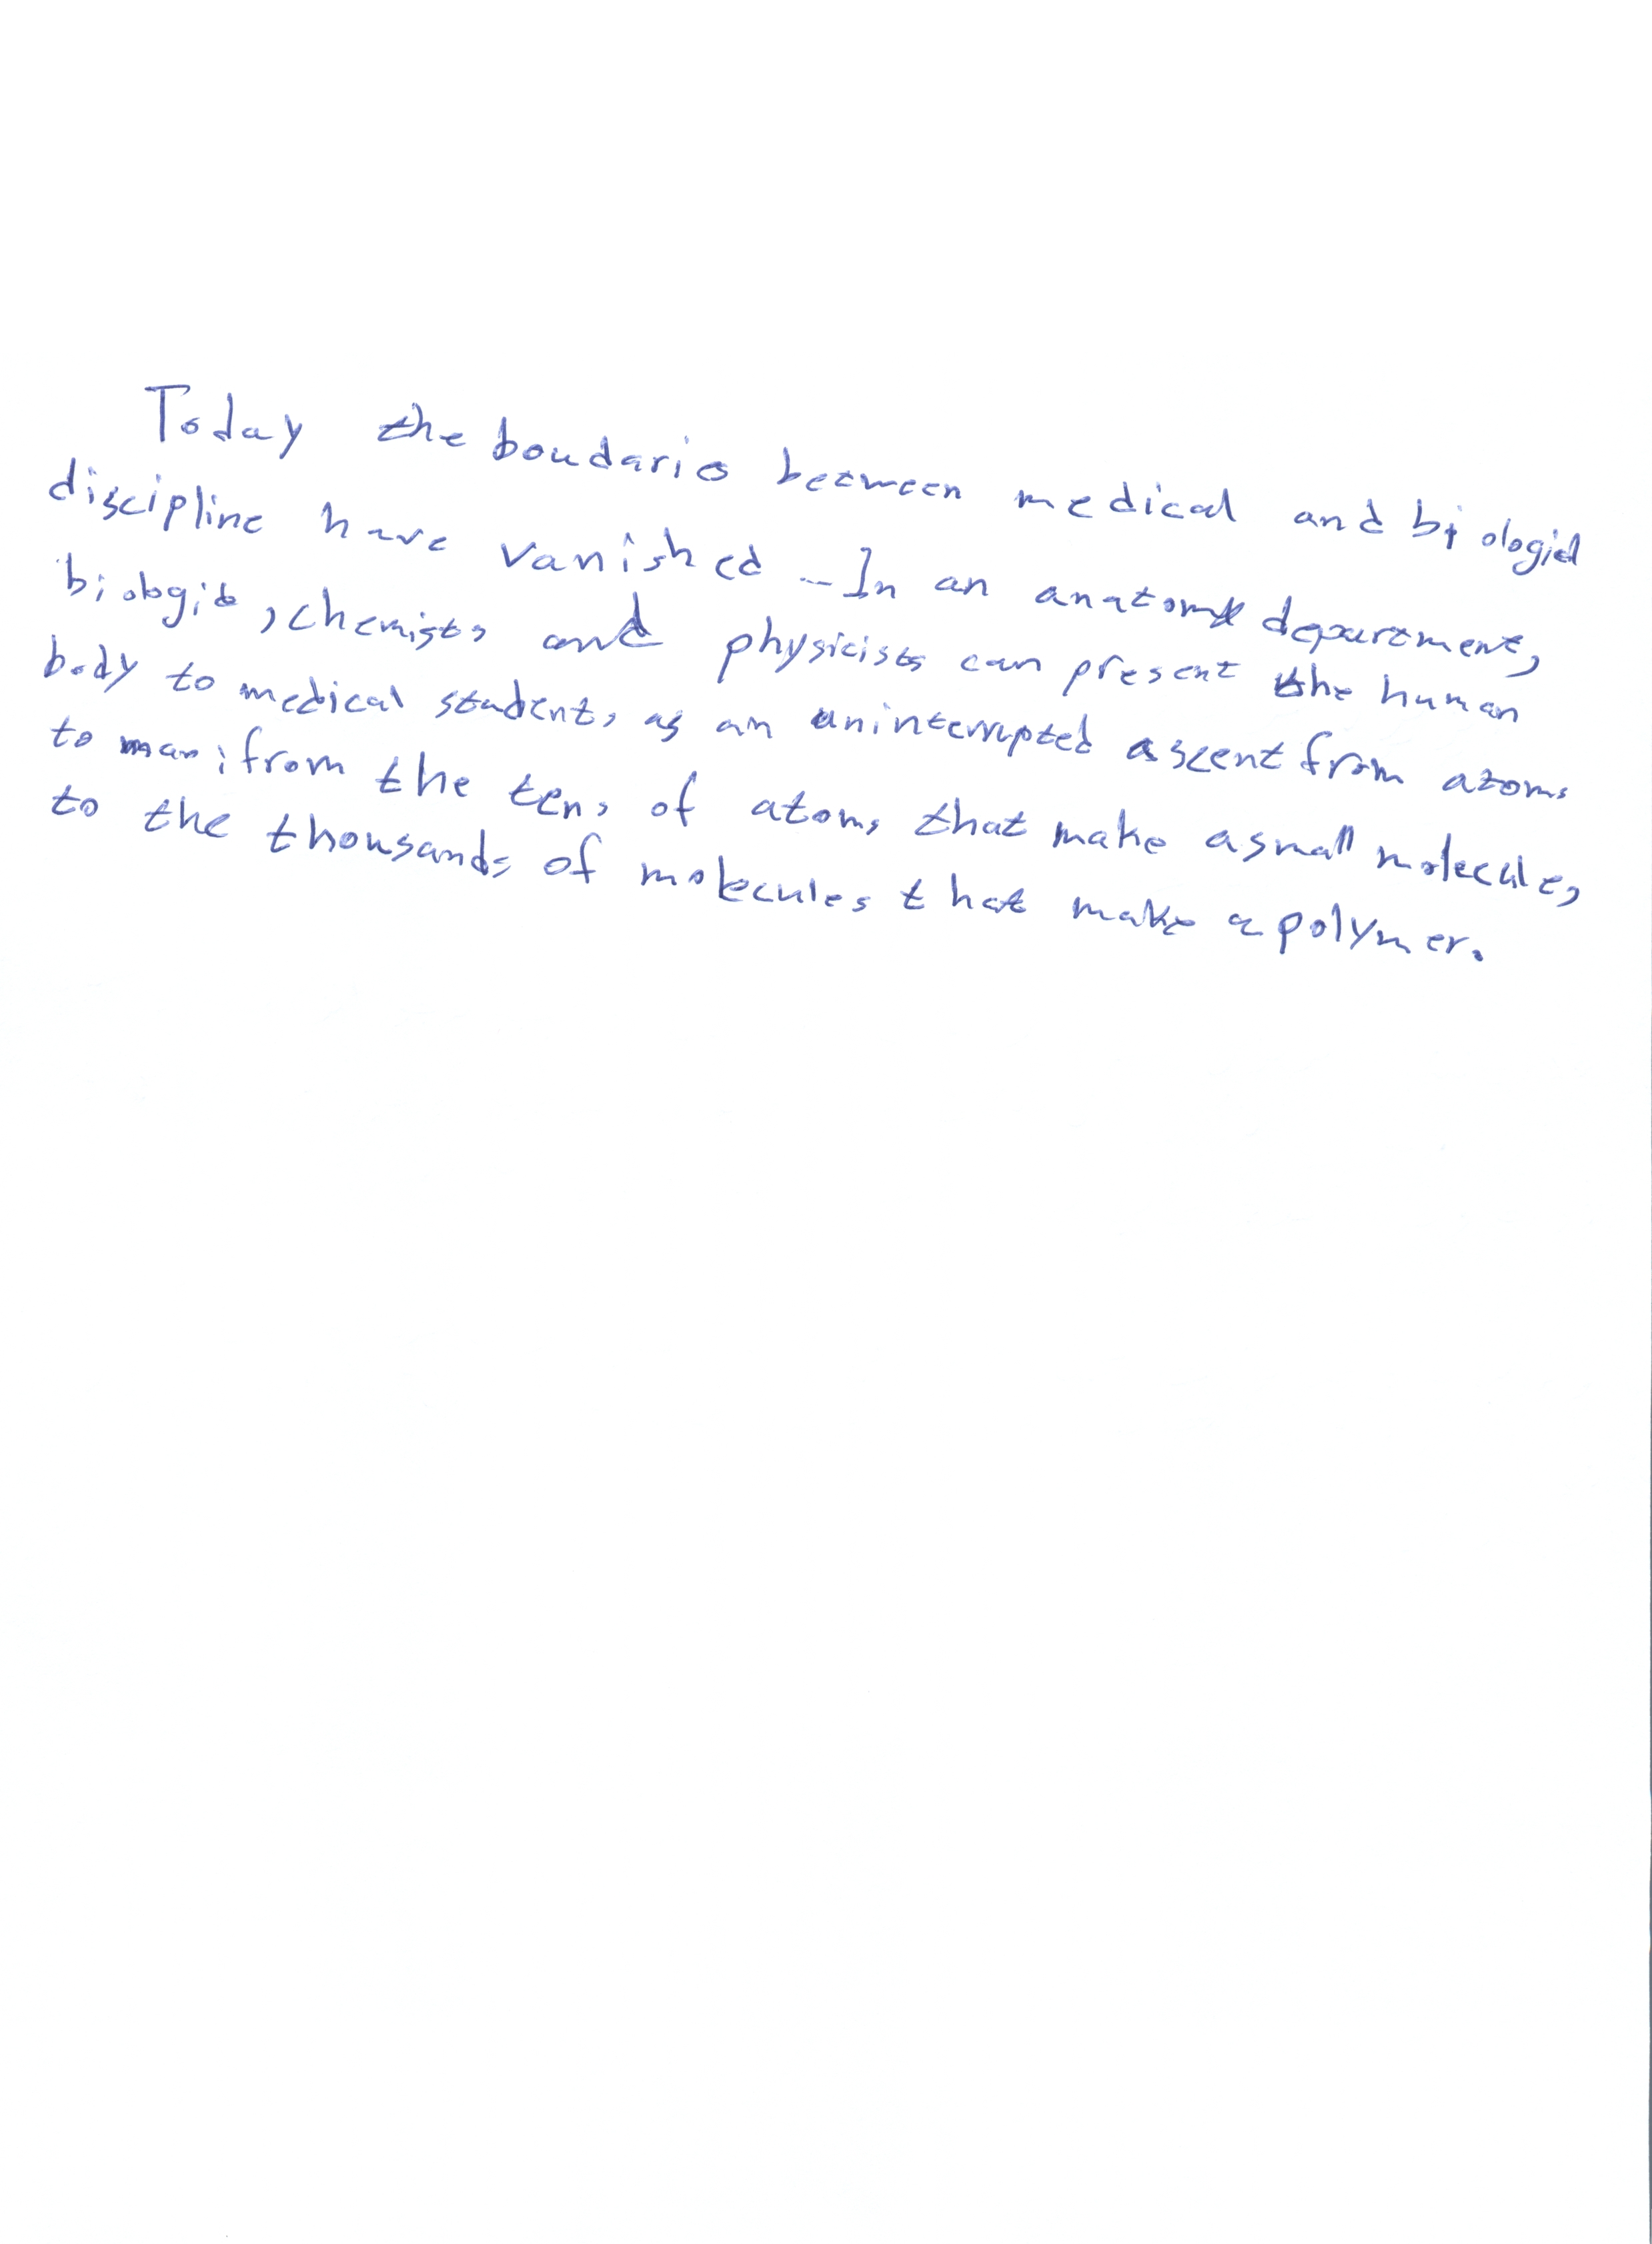 Today the boudaries between medical and biological
discipline have vanished - In an anatomy department,
biologist, chemists and physicists can present the human
body to medical students as an uninterrupted ascent from atoms
to man; from the tens of atoms that make a small molecule,
to the thousands of molecules that make a polymer.